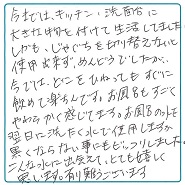 今までは、キッチン・洗面台に
大きな浄水を付けて生活してました。
しかも、じゃぐちを切り替えないと
使用出来ず、めんどうでしたが、
今では、どこをひねってもすぐに
飲めて楽ちんです。お風呂もすごく
やわらかく感じてます。お風呂の水を
翌日に洗たく水で使用しますが
臭くならない事にもビックリしました。
こんな水に出会えて、とても嬉しく
思います。有り難うございます